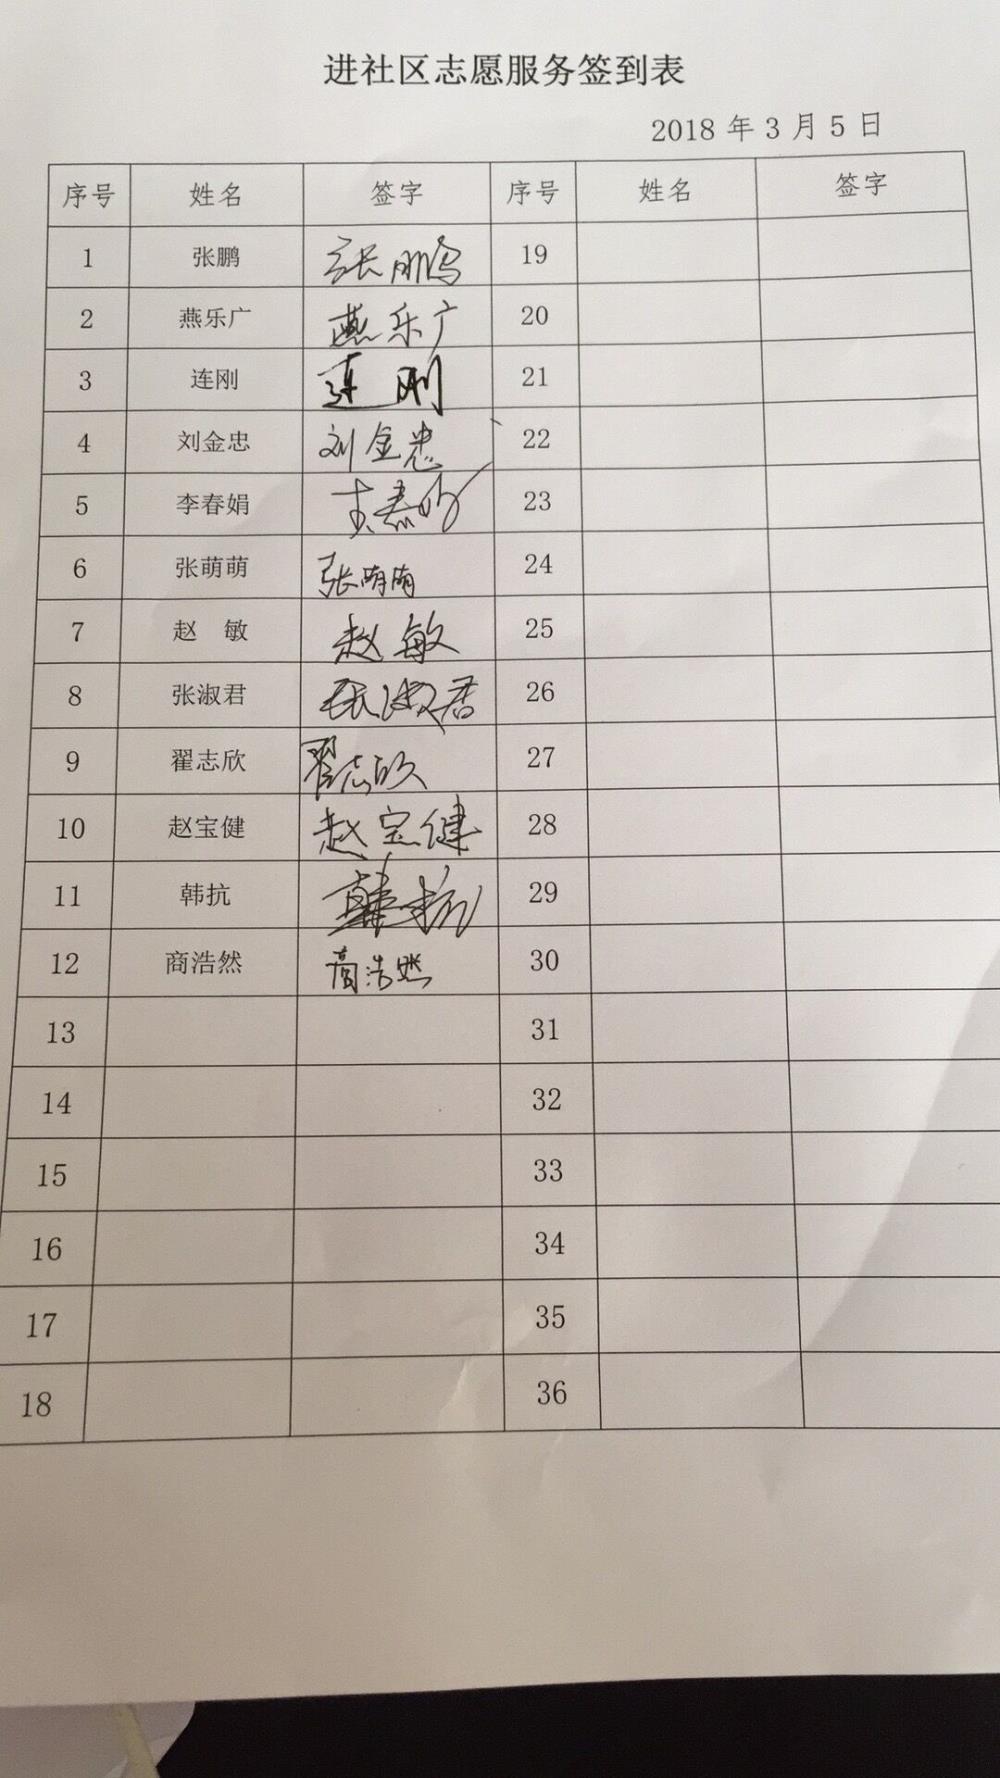 进社区志愿服务签到表
2018 年 3 月 5 日
序号 姓名 签字 序号 姓名 签字
1 张鹏 张鹏 19
2 燕乐广 燕乐广 20
3 连刚 连刚 21
4 刘金忠 刘金忠 22
5 李春娟 李春娟 23
6 张萌萌 张萌萌 24
7 赵 敏 赵敏 25
8 张淑君 张淑君 26
9 翟志欣 翟志欣 27
10 赵宝健 赵宝健 28
11 韩抗 韩抗 29
12 商浩然 商浩然 30
13 31
14 32
15 33
16 34
17 35
18 36